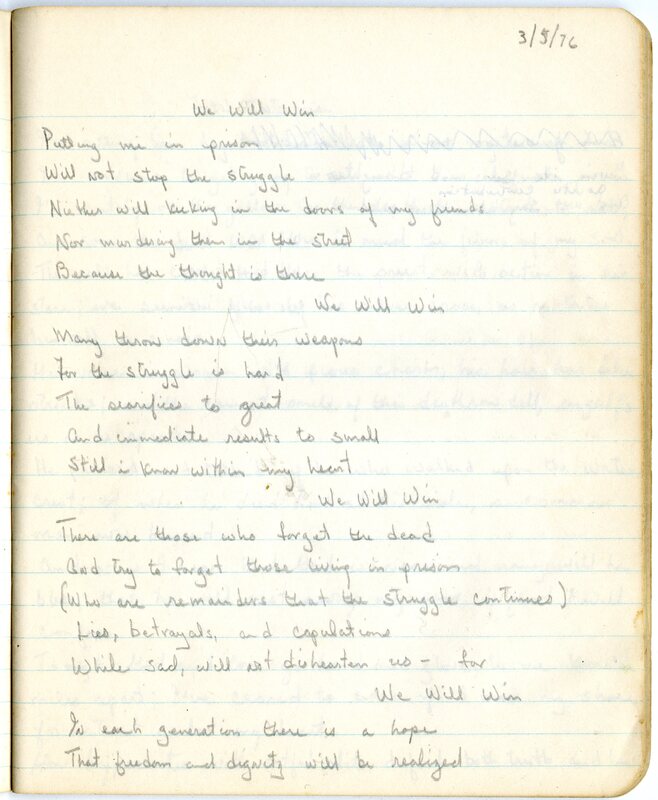 3/5/76
We Will Win
Putting me in prison
Will not stop the struggle
Niether will kicking in the doors of my friends
Nor murdering them in the street
Because the thought is there
We Will Win
Many throw down their weapons
For the struggle is hard
The scarifies to great
And immediate results to small
Still i know within my heart
We Will Win
There are those who forget the dead
And try to forget those living in prison
(Who are remainders that the struggle continues)
Lies, betrayals, and capulations
While sad, will not dishearten us - for
We Will Win
In each generation there is a hope
That freedom and dignity will be realized